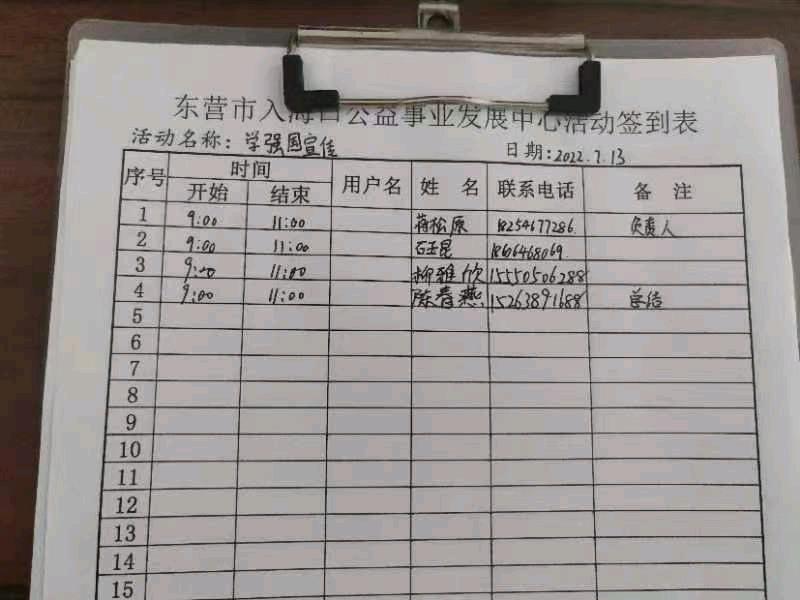 东营市入海口公益事业发展中心活动签到表
活动名称：学强国宣传 日期：2022.7.13
序号 时间 用户名 姓 名 联系电话 备 注
开始 结束
1 9:00 11:00 蒋松原 18254677286 负责人
2 9:00 11:00 石玉昆 18606468069
3 9:00 11:00 柳雅欣 15550506288
4 9:00 11:00 陈青燕 15263891688 总结
5
6
7
8
9
10
11
12
13
14
15